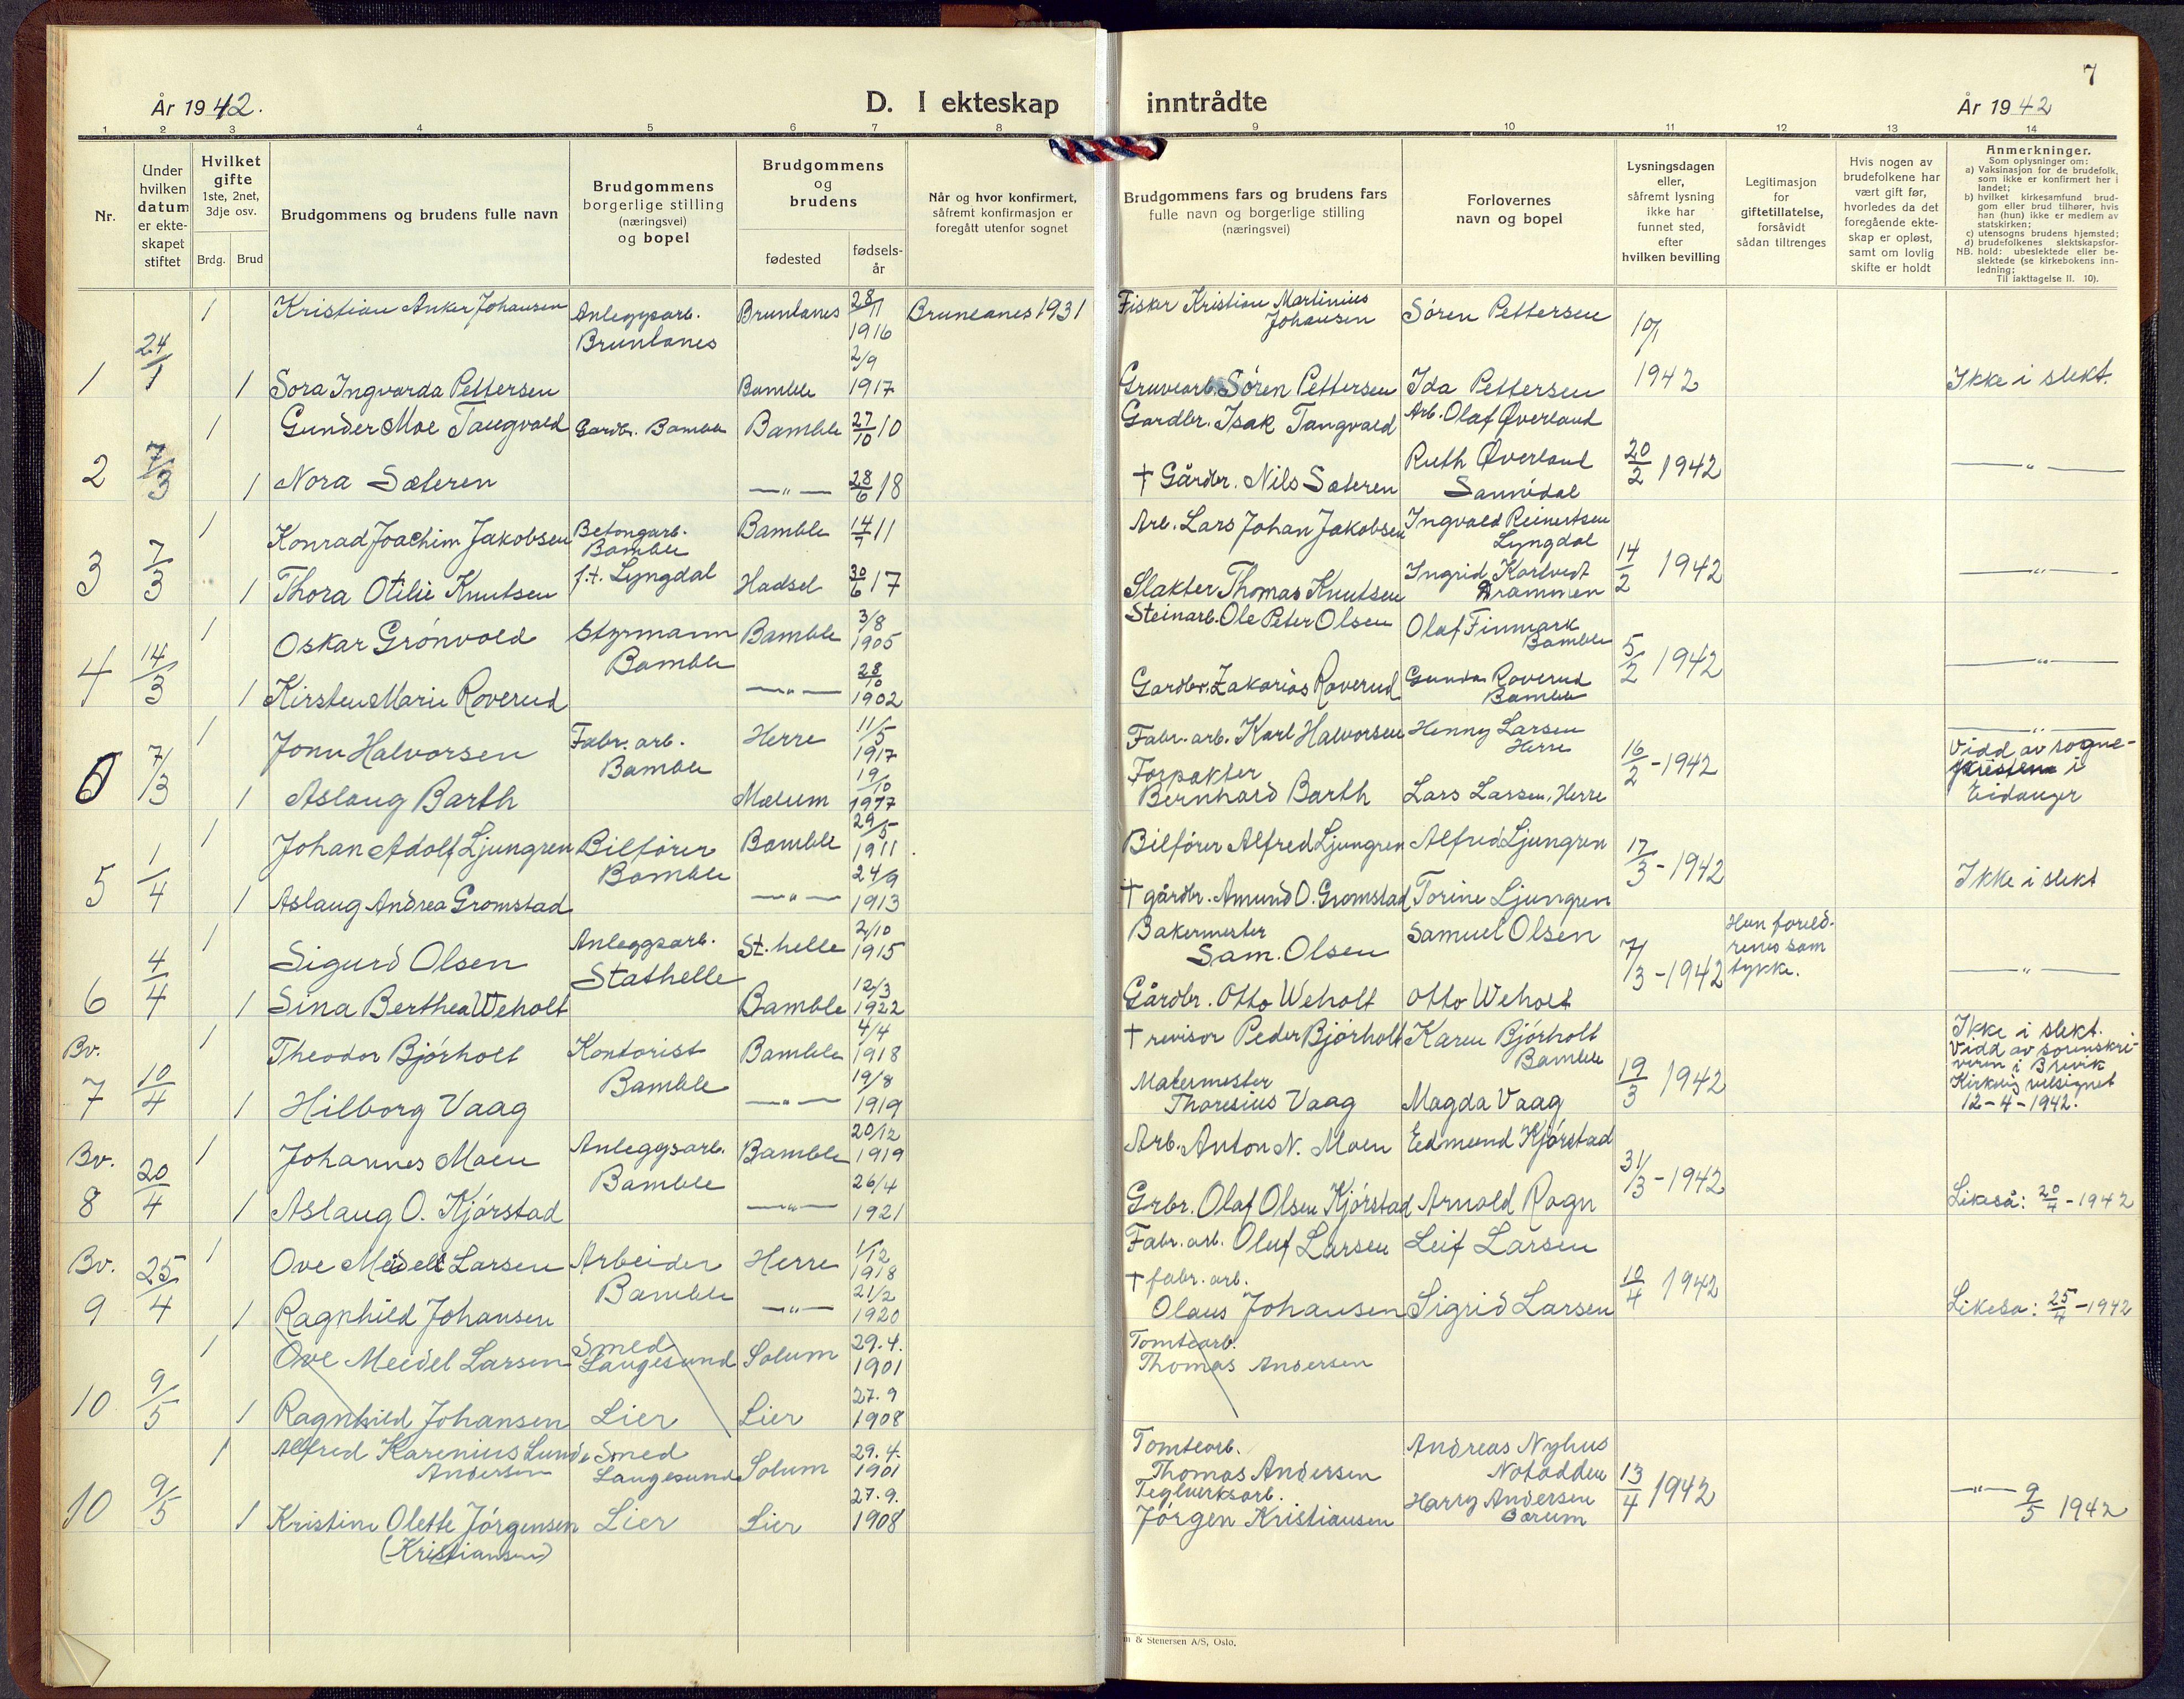 7
År 1942.
D. I ekteskap
inntrådte
År 1942
1 2 3 4 5 6 7 8 9 10 11 12 13 14
Nr.
Under hvilken datum er ekteskapet stiftet
Hvilket gifte 1ste, 2net, 3dje osv.
Brdg. Brud
Brudgommens og brudens fulle navn
Brudgommens borgerlige stilling (næringsvei) og bopel
Brudgommens og brudens
fødested
fødsels-år
Når og hvor konfirmert, såfremt konfirmasjon er foregått utenfor sognet
Brudgommens fars og brudens fars fulle navn og borgerlige stilling (næringsvei)
Forlovernes navn og bopel
Lysningsdagen eller, såfremt lysning ikke har funnet sted, efter hvilken bevilling
Legitimasjon for giftetillatelse, forsåvidt sådan tiltrenges
Hvis nogen av brudefolkene har vært gift før, hvorledes da det foregående ekteskap er opløst, samt om lovlig skifte er holdt
Anmerkninger.
Som oplysninger om:
a) Vaksinasjon for de brudefolk, som ikke er konfirmert her i landet;
b) hvilket kirkesamfund brudgom eller brud tilhører, hvis han (hun) ikke er medlem av statskirken;
c) utensogns brudens hjemsted;
d) brudefolkenes slektskapsforhold: ubeslektede eller beslektede (se kirkebokens innledning;
NB.
Til iakttagelse II. 10).
1 Kristian Anker Johansen Anleggsarb. Brunlanes Brunlanes 28/11 1916 Brunlanes 1931 Fisker Kristian Martinius Johansen Søren Pettersen 10/1
1 24/1 1 Sora Ingvarda Pettersen Bamble 2/9 1917 Gruvearb. Søren Pettersen Ida Pettersen 1942 Ikke i slekt.
1 Gunder Moe Tangvald Gardbr. Bamble Bamble 27/10 10 Gardbr. Isak Tangvald Arb. Olaf Øverland
2 7/3 1 Nora Sæteren —„— 28/6 18 † Gårdbr. Nils Sæteren Ruth Øverland Sannidal 20/2 1942 —„—
1 Konrad Joachim Jakobsen Betongarb. Bamble f.t. Lyngdal Bamble 14/7 11 Arb. Lars Johan Jakobsen Ingvald Reinertsen Lyngdal
3 7/3 1 Thora Otilie Knutsen Hadsel 30/6 17 Slakter Thomas Knutsen Ingrid Kortvedt Drammen 14/2 1942 —„—
1 Oskar Grønvold Styrmann Bamble Bamble 3/8 1905 Steinarb. Ole Peter Olsen Olaf Finmark Bamble
4 14/3 1 Kirsten Marie Roverud —„— 28/10 1902 Gardbr. Zakarias Roverud Gunda Roverud Bamble 5/2 1942 —„—
1 Jonn Halvorsen Fabr. arb. Bamble Herre 11/5 1917 Fabr. arb. Karl Halvorsen Henny Larsen Herre —„—
7/3 1 Aslaug Barth Mælum 19/10 Forpakter Bernhard Barth Lars Larsen, Herre 16/2 - 1942 Vidd av sogne- i Eidanger
1 Johan Adolf Ljungren Bilfører Bamble Bamble 29/5 1911 Bilfører Alfred Ljungren Alfred Ljungren
5 1/4 1 Aslaug Andrea Gromstad —„— 24/9 1913 † gårdbr. Amund O. Gromstad Torine Ljungren 17/3 - 1942 Ikke i slekt
1 Sigurd Olsen Anleggsarb. Stathelle St. helle 2/10 1915 Bakermester Sam. Olsen Samuel Olsen Hun foreldrenes samtykke.
6 4/4 1 Sina Berthea Weholt Bamble 12/3 1922 Gårdbr. Otto Weholt Otto Weholt 7/3 - 1942 —„—
Bv. 1 Theodor Bjørholt Kontorist Bamble Bamble 4/4 1918 † revisor Peder Bjørholt Karen Bjørholt Bamble
7 10/4 1 Hilborg Vaag —„— 19/8 1919 Malermester Thoresius Vaag Magda Vaag 19/3 1942 Ikke i slekt. Vidd av sorenskriveren i Brevik Kirkelig velsignet 12-4-1942.
Bv. 1 Johannes Moen Anleggsarb. Bamble Bamble 20/12 1919 Arb. Anton N. Moen Edmund Kjørstad
8 20/4 1 Aslaug O. Kjørstad —„— 26/4 1921 Grbr. Olaf Olsen Kjørstad Arnold Rogn 31/3 - 1942 Likeså: 20/4 - 1942
Bv. 1 Ove Meidell Larsen Arbeider Bamble Herre 1/12 1918 Fabr. arb. Oluf Larsen Leif Larsen
9 25/4 1 Ragnhild Johansen —„— 21/2 1920 † fabr. arb. Olaus Johansen Sigrid Larsen 10/4 1942 Likeså: 25/4 - 1942
1 Ove Meidel Larsen Smed Langesund Solum 29.4. 1901 Tomtearb. Thomas Andersen
10 9/5 1 Ragnhild Johansen Lier Lier 27.9 1908
1 Alfred Karenius Lunde Andersen Smed Langesund Solum 29.4. 1901 Tomtearb. Thomas Andersen Andreas Nyhus Notodden
10 9/5 1 Kristine Olette Jørgensen (Kristiansen) Lier Lier 27.9. 1908 Teglverksarb. Jørgen Kristiansen Harry Andersen Bærum 13/4 1942 —„— 9/5 1942
& Stenersen A/S, Oslo.